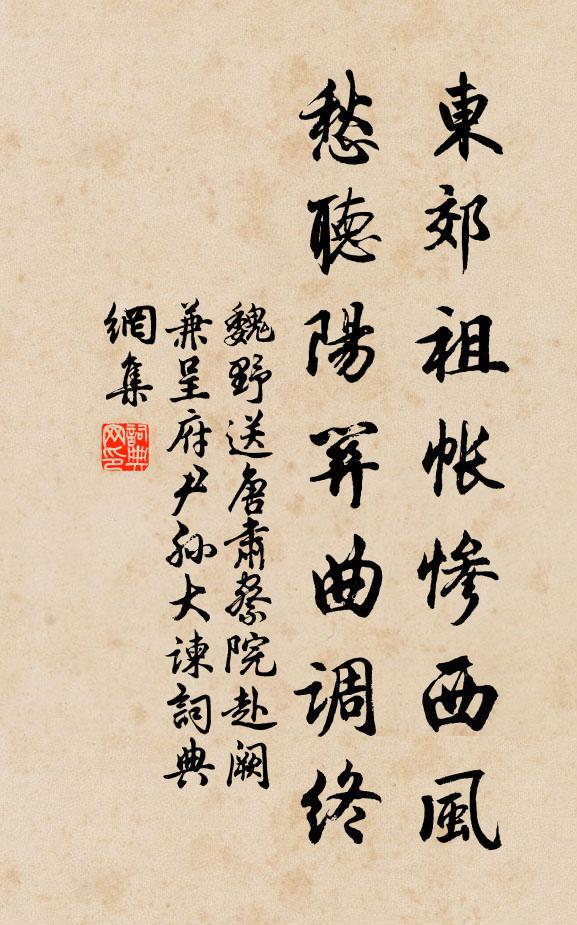 東郊祖帳慘西風
愁聽陽关曲調終
魏野送唐肅察院赴闕
兼呈府尹孙大諫詞典
網集
詞典
网印